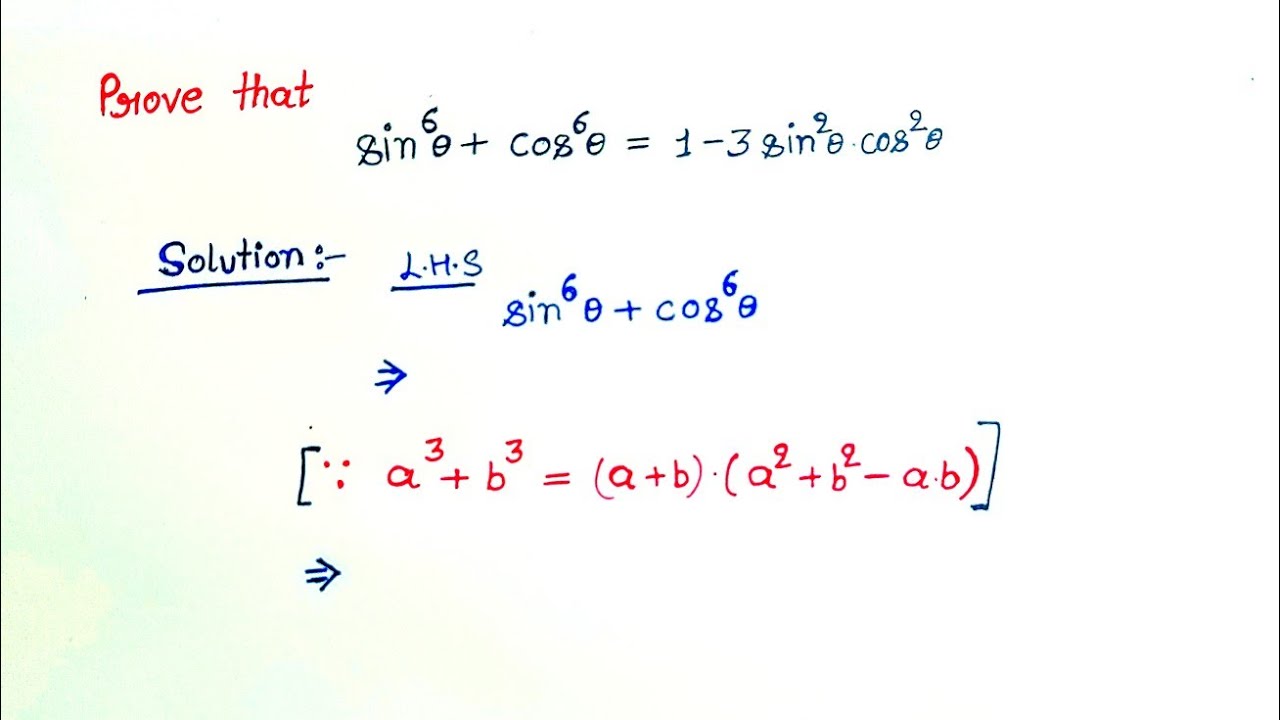 Prove that
sin⁶θ + cos⁶θ = 1 - 3 sin²θ · cos²θ
Solution :- L.H.S
sin⁶θ + cos⁶θ
⇒
[∵ a³ + b³ = (a+b)·(a² + b² - a.b)]
⇒